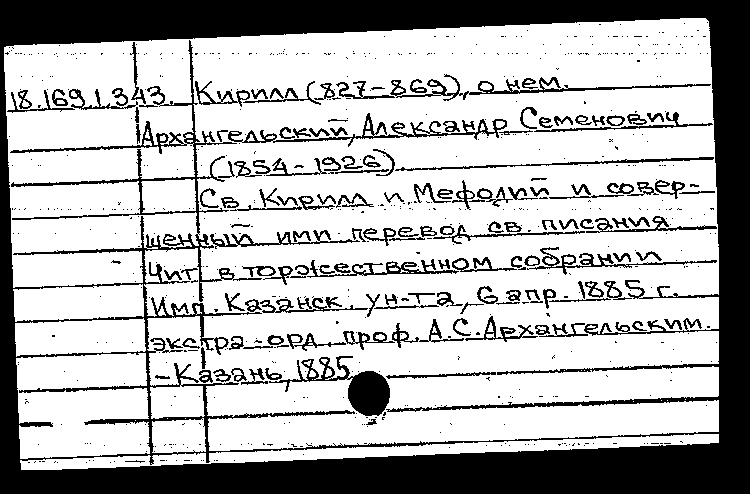 18.169.1.343. Кирилл (827-869), о нем.
Архангельский, Александр Семенович
(1854-1926).
Св. Кирилл и Мефодий и совер-
шенный ими перевод св. писания
Чит. в торжественном собрании
Имп. Казанск. ун-та, 6 апр. 1885 г.
экстра-орд. проф. А.С. Архангельским.
-Казань, 1885